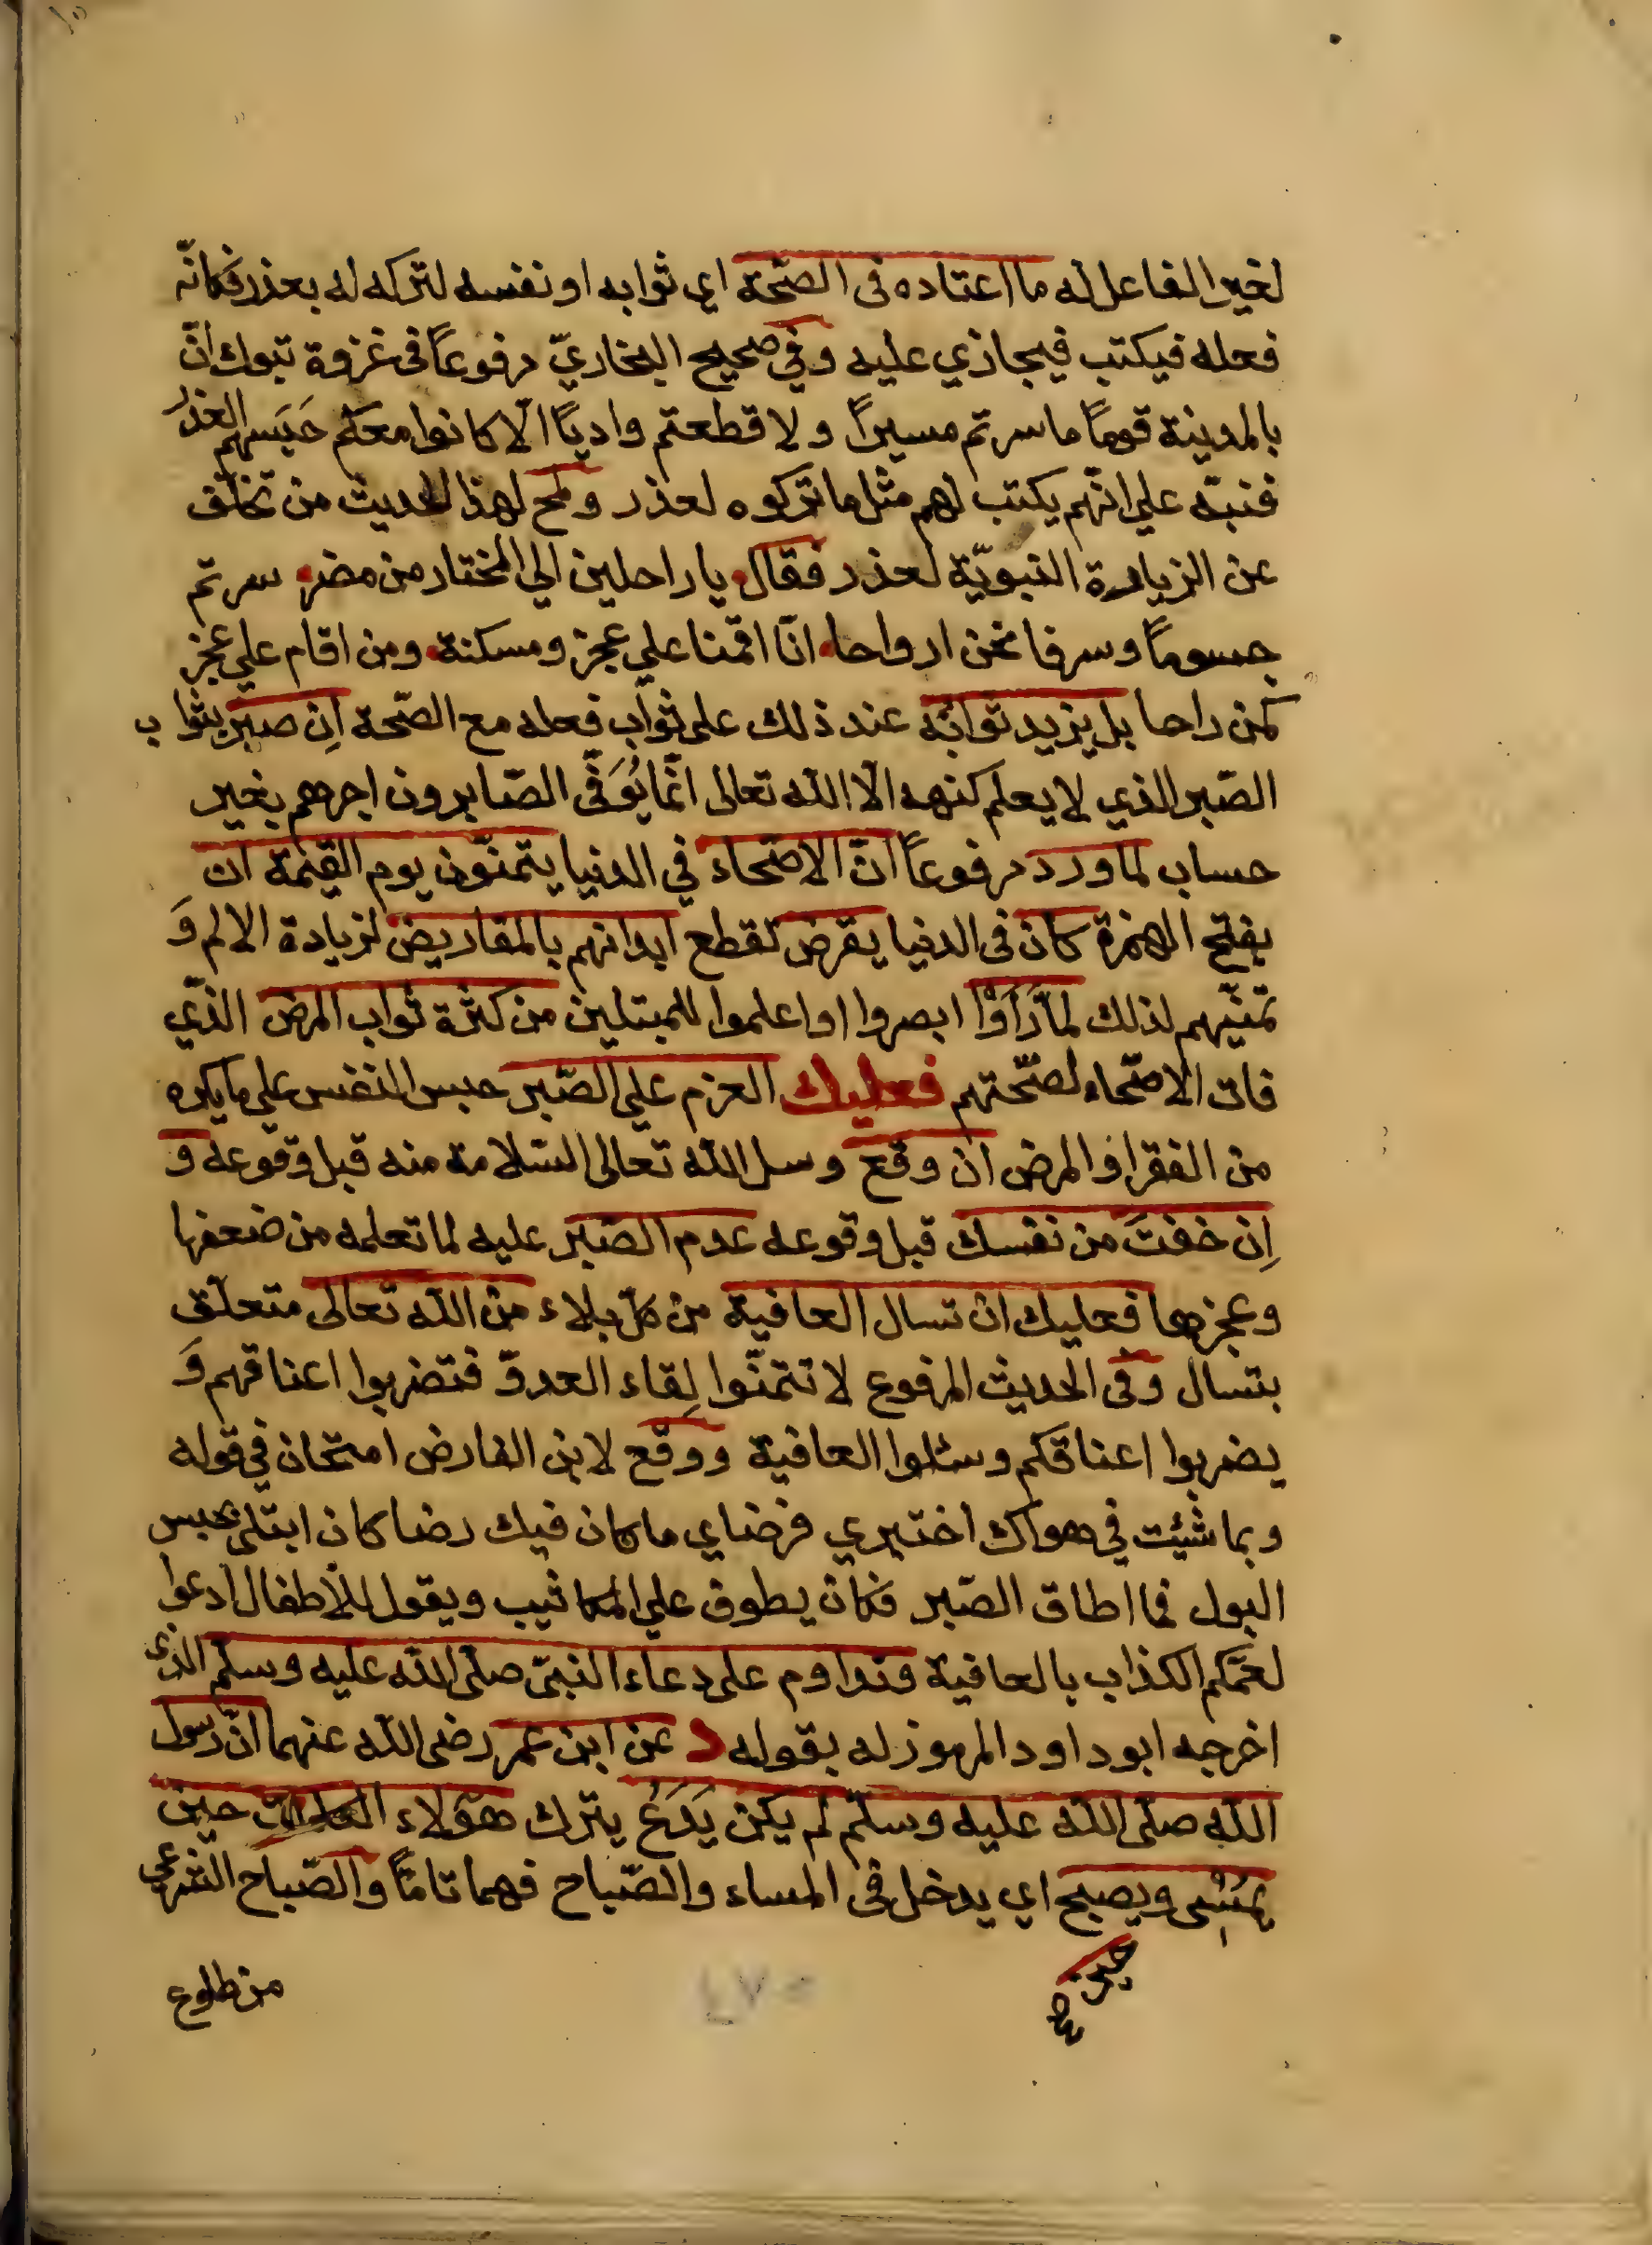 لغير الفاعل له ما اعتاده فى الصّحة اي ثوابه او نفسه لتركه له بعذر فكانّه
فعله فيكتب فيجازي عليه وفي صحيح البخاريّ مرفوعاً فى غزوة تبوك انّ
بالمدينة قوماً ما سرتم مسيراً ولا قطعتم وادياً الّا كانوا معكم حَبَسهم العذرُ
فنبّه علي انّهم يكتب لهم مثل ما تركوه لعذر ولمح لهذا الحديث من تخلّف
عن الزيارة النبويّة لعذر فقال يا راحلين الي المختار من مضر سرتم
جسوماً وسرنا نحن ارواحا انّا اقمنا علي عجز ومسكنة ومن اقام علي عجز
كمن راحا بل يزيد ثوابُه عند ذلك على ثواب فعله مع الصّحة اِن صبر بثواب
الصّبر الذي لا يعلم كنهه الّا الله تعالى انّما يُوَفّى الصّابرون اجرهم بغير
حساب لما ورد مرفوعاً انّ الاصّحاء في الدنيا يتمنّون يوم القيٰمة ان
بفتح الهمزة كان فى الدنيا يقرض تقطع ابدانهم بالمقاريض لزيادة الالم وَ
تمنّيهم لذلك لمّا رَاَوْا ابصروا او علموا للمبتلين من كثرة ثواب المرض الذّي
فات الاصّحاء لصّحتهم فعليك العزم علي الصّبر حبس النفس علي ما يكره
من الفقر او المرض ان وقع وسل الله تعالى السّلامة منه قبل وقوعه و
اِن خفتَ من نفسك قبل وقوعه عدم الصّبر عليه لما تعلمه من ضعفها
وعجزها فعليك ان تسال العافية من كلّ بلاء من الله تعالى متعلّق
بتسال وفى الحديث المرفوع لا تتمنّوا لِقاء العدوّ فتضربوا اعناقهم وَ
يضربوا اعناقكم وسئلوا العافية ووقع لابن الفارض امتحان في قوله
وبما شئت في هواك اختبري فرضاي ما كان فيك رضا كان ابتلى بحبس
البول فما اطاق الصّبر فكان يطوف علي المكاتيب ويقول للأطفال ادعوا
لعمّكم الكذاب بالعافية وتداوم على دعاء النبّى صلّى الله عليه وسلّم الذى
اخرجه ابو داود المرموز له بقوله د عن ابن عمر رضى الله عنهما انّ رسول
الله صلّى الله عليه وسلّم لم يكن يَدَعُ يترك هؤلاء الكلمات حين
يُمْسِى ويصبح اي يدخل فى المساء والصّباح فهما تامّاً والصّباح الشرعى
من طلوع